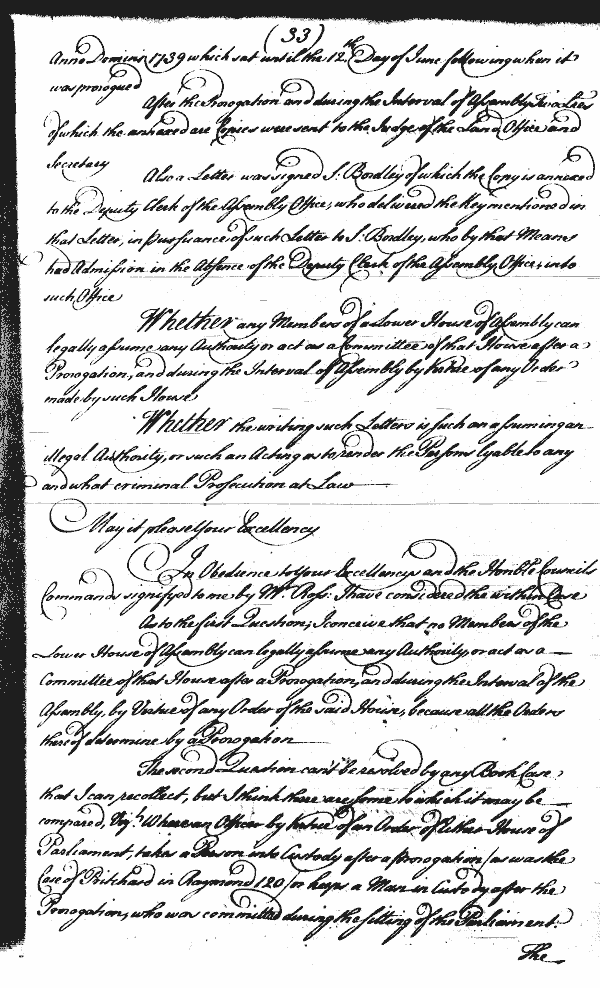 (33)
Anno Domini 1739 which sat until the 12th Day of June following when it
was prorogued
After the Prorogation and during the Interval of Assembly Two Lres
of which the annexed are Copies were sent to the Judge of the Land Office and
Secretary
Also a Letter was signed J: Bordley of which the Copy is annexed
to the Deputy Clerk of the Assembly Office, who delivered the Key mentioned in
that Letter, in pursuance of such Letter to J: Bordley, who by that Means
had Admission in the Absence of the Deputy Clerk of the Assembly Office, into
such Office
Whether any Members of a Lower House of Assembly can
legally assume any Authority or act as a Committee of that House after a
Prorogation, and during the Interval of Assembly by Virtue of any Order
made by such House
Whether the writing such Letters is such an assuming an
illegal Authority, or such an Acting as to render the Persons lyable to any
and what criminal Prosecution at Law
May it please Your Excellency
In Obedience to Your Excellencys and the Honble Councils
Commands signifyed to me by Mr. Ross: I have considered the within Case
As to the first Question; I conceive that no Members of the
Lower House of Assembly can legally assume any Authority, or act as a
Committee of that House after a Prorogation, and during the Interval of the
Assembly, by Virtue of any Order of the said House, because all the Orders
thereof determine by a Prorogation
The second Question can't be resolved by any Book Case
that I can recollect, but I think there are some to which it may be
compared, Vizt. Where an Officer by Virtue of an Order of Either House of
Parliament, takes a Person into Custody after a prorogation (as was the
Case of Pritchard in Raymond 120) or keeps a Man in Custody after the
Prorogation, who was committed during the sitting of the Parliament:
The